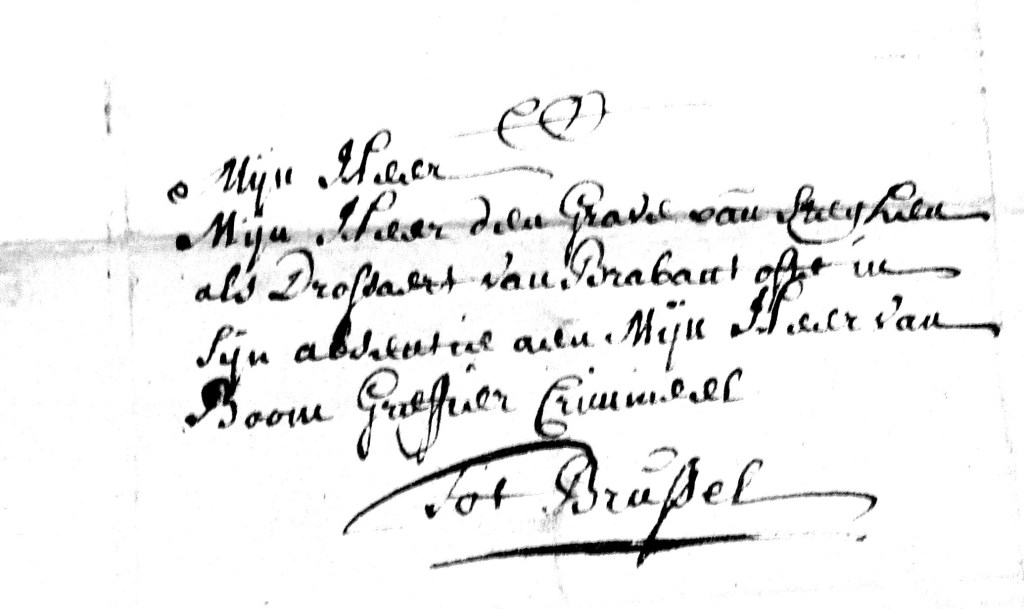 Mijn Heer
Mijn Heer den Grave van
als Drossaert van Brabant ofte in
sijn absentie aen Mijn Heer van
Boom Greffier Crimineel
Tot Brussel